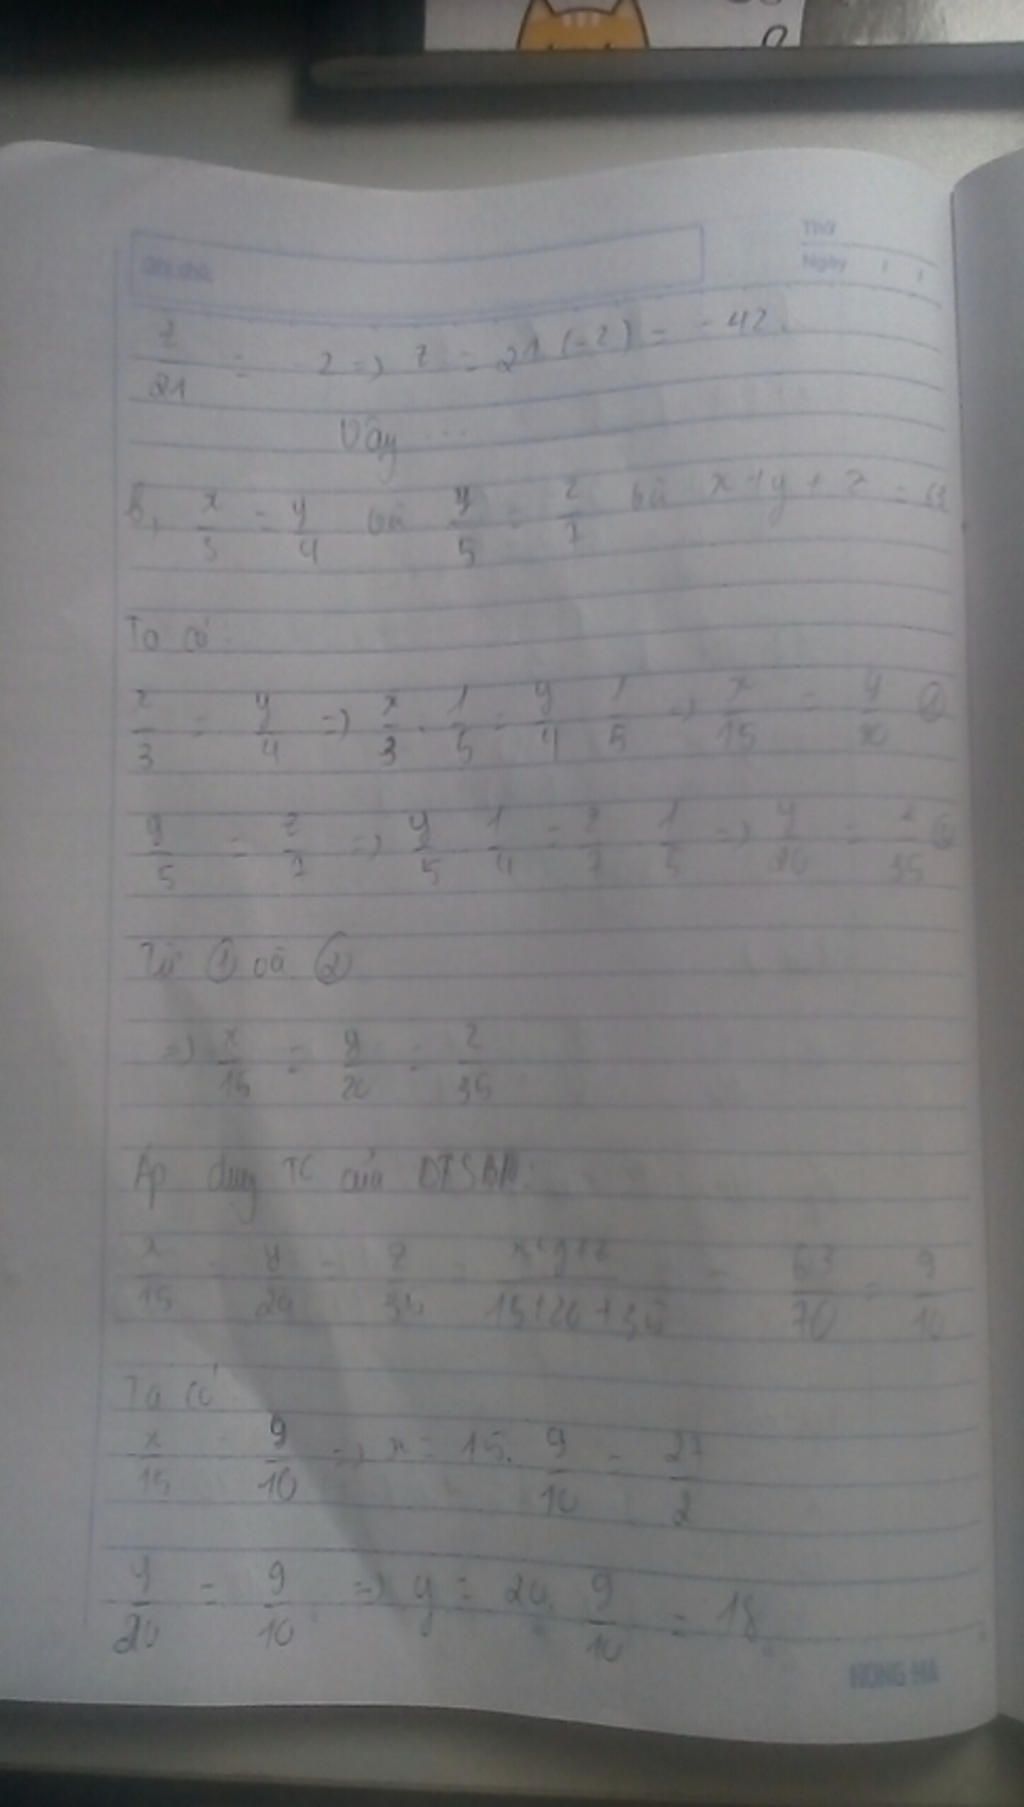 Thứ
Ghi chú:
Ngày
z/21 = -2 => z = 21 (-2) = -42.
Vậy ...
b, x/3 = y/4 và y/5 = z/7 và x + y + z = 63
Ta có:
x/3 = y/4 => x/3 . 1/5 = y/4 1/5 => x/15 = y/20 ①
y/5 = z/7 => y/5 1/4 = z/7 1/5 => y/20 = z/35 ②
Từ ① và ②
=> x/15 = y/20 = z/35
Áp dụng TC của DTSBN:
x/15 = y/20 = z/35 = x+y+z/15+20+35 = 63/70 = 9/10
Ta có
x/15 = 9/10 => x = 15. 9/10 = 27/2
y/20 = 9/10 => y = 20. 9/10 = 18.
HONG HA